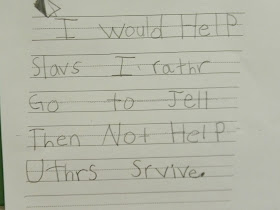 I Would HelP
Slavs I rathr
Go to Jell
Then Not HelP
Uthrs Srvive.